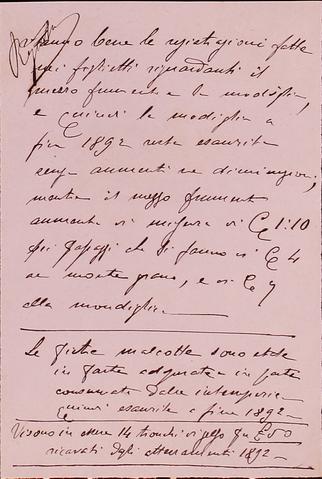 Vanno bene le registrazioni fatte
nei foglietti riguardanti il
mezzo frumento e la mondiglia,
e quindi la mondiglia a
fine 1892 resta esaurita
senza aumenti ne diminuzioni;
mentre il mezzo frumento
aumenta di misura di C 1:10
pei passaggi che si fanno di C 4
al monte grano, e di C 7
alla mondiglia.
Le pietre malcotte sono state
in parte adoperate in parte
consumate dalle intemperie
quindi esaurite a fine 1892
Vi sono in essere 14 tronchi
ricavati dagli atterramenti 1892